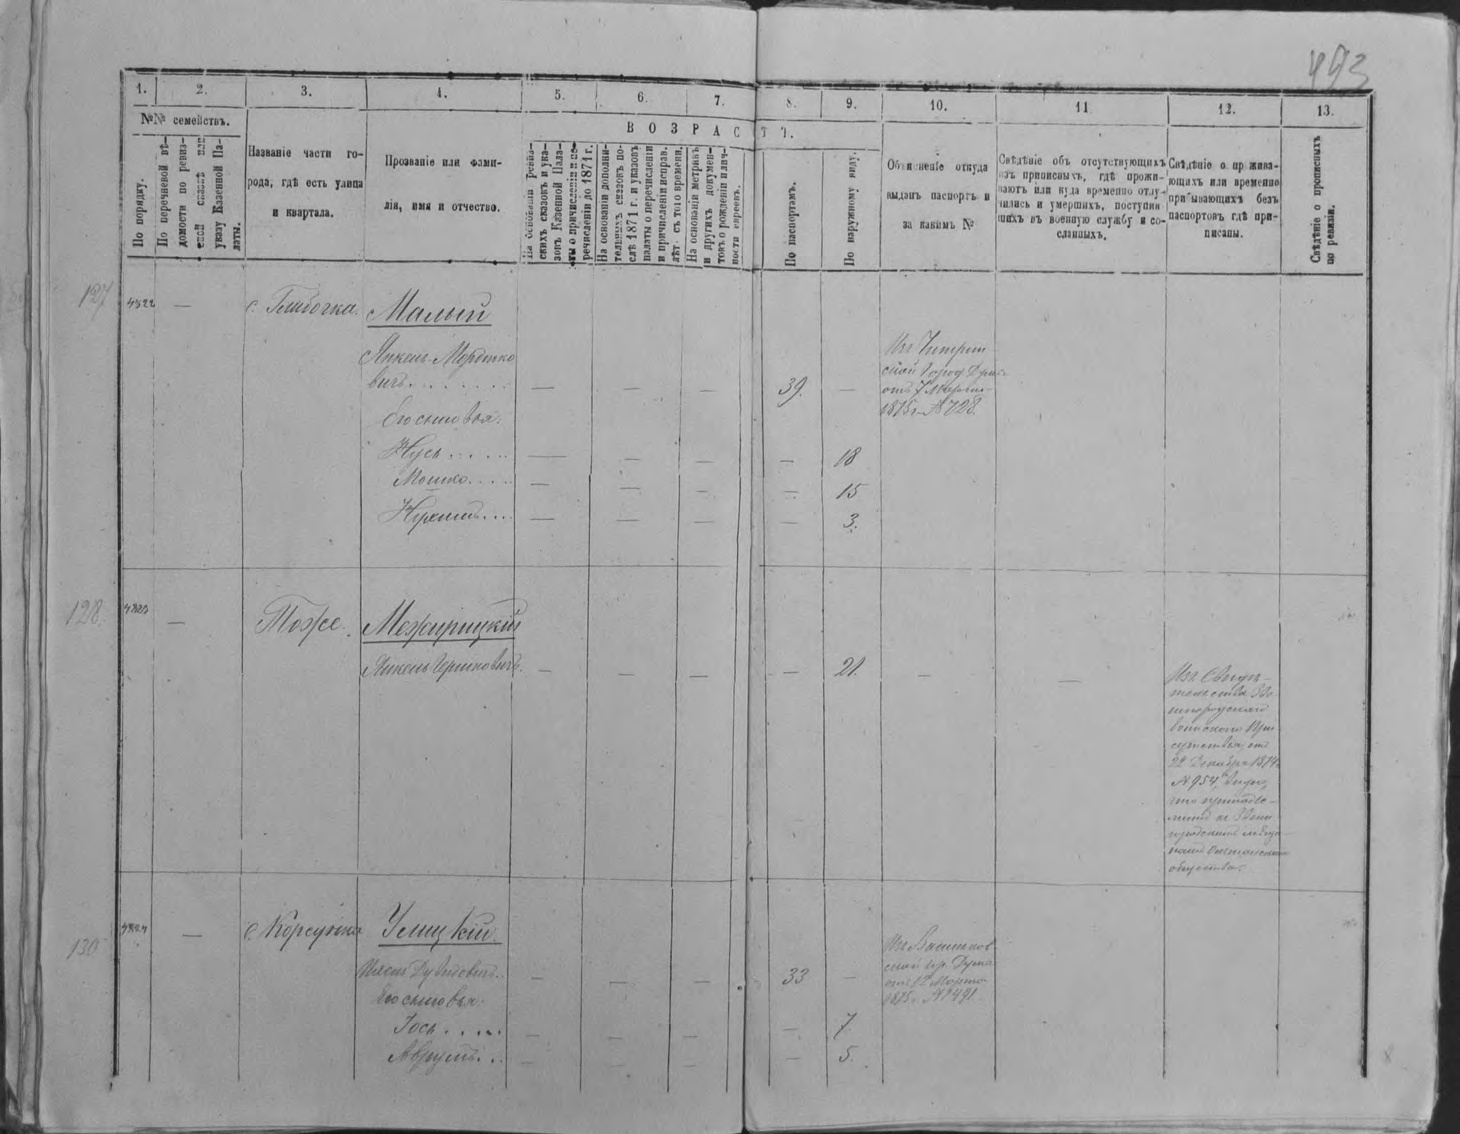 493
1. 2. 3. 4. 5. 6. 7. 8. 9. 10. 11 12. 13.
№№ семействъ.
По порядку.
По перечневой вѣ-
домости по ревиз-
ской сказкѣ или
указу Казенной Па-
латы.
Названіе части го-
рода, гдѣ есть улица
и квартала.
Прозваніе или фами-
лія, имя и отчество.
ВОЗРАСТЪ.
На основаніи ревиз-
скихъ сказокъ и ука-
зовъ Казенной Пала-
ты о причисленіи и пе-
речисленіи до 1871 г.
На основаніи дополни-
тельныхъ сказокъ по-
слѣ 1871 г. и указовъ
палаты о перечисленіи
и причисленіи исправ.
лѣт. съ того времени.
На основаніи метрикъ
и другихъ докумен-
товъ о рожденіи и лич-
ности евреевъ.
По паспортамъ.
По наружному виду.
Объясненіе откуда
выданъ паспортъ и
за какимъ №
Свѣдѣніе объ отсутствующихъ
изъ приписныхъ, гдѣ прожи-
ваютъ или куда временно отлу-
чились и умершихъ, поступив
шихъ въ военную службу и со-
сланныхъ.
Свѣдѣніе о прожива-
ющихъ или временно
прибывающихъ безъ
паспортовъ гдѣ при-
писаны.
Свѣдѣніе о прописныхъ
по ревизіи.
127 4822 — с. Глибочка. Малый
Янкель Мордко
вичъ — — — 39. —
Его сыновья:
Нусь — — — — 18
Мошко — — — — 15
Нухимъ — — — — 3.
ской Город Думы
отъ 7
1875 г. № 728.
128. 4823 — Тоже. Межирицкій
Янкель Гершковичъ. — — — — 21. — —
Изъ Свидѣ-
тельства Зве
нигородскаго
воинскаго При
сутствія отъ
22 Декабря 1874
№ 954, видно,
что принадле-
житъ къ Звени
городскому
обществу.
130 4824 — с. Корсунка Улицкій.
Дувидовичъ. — — — 33 —
Его сыновья:
Іось — — — — 7
Аврумъ — — — — 5.
Изъ Васильков
ской гор. Думы
отъ 12 Марта
1875 г. № 1491.